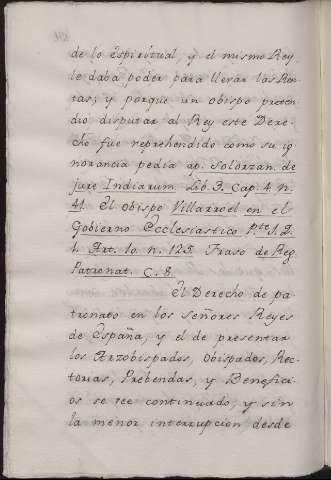 de lo Espiritual, y el mismo Rey
le daba poder para llevar las Ren-
tas; y porque un obispo preten-
dió disputar al Rey este Dere-
cho fue reprehendido como su ig
norancia pedia ap. Solorzan. de
jure Indiarum Lib. 3. Cap. 4. n.
41. El Obispo Villarroel en el
Gobierno Ecclesiastico Pte. 1. Q.
1. Art. 10. n. 125. Fraso de Reg.
Patronat. C. 8.
El Derecho de pa-
tronato en los Señores Reyes
de España, y el de presentar
los Arzobispados, Obispados, Rec-
torias, Prebendas, y Benefici-
os se vee continuado, y sin
la menor interrupcion desde